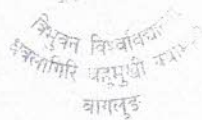 त्रिभुवन विश्वविद्यालय
धवलागिरि बहुमुखी क्याम्पस
बागलुङ